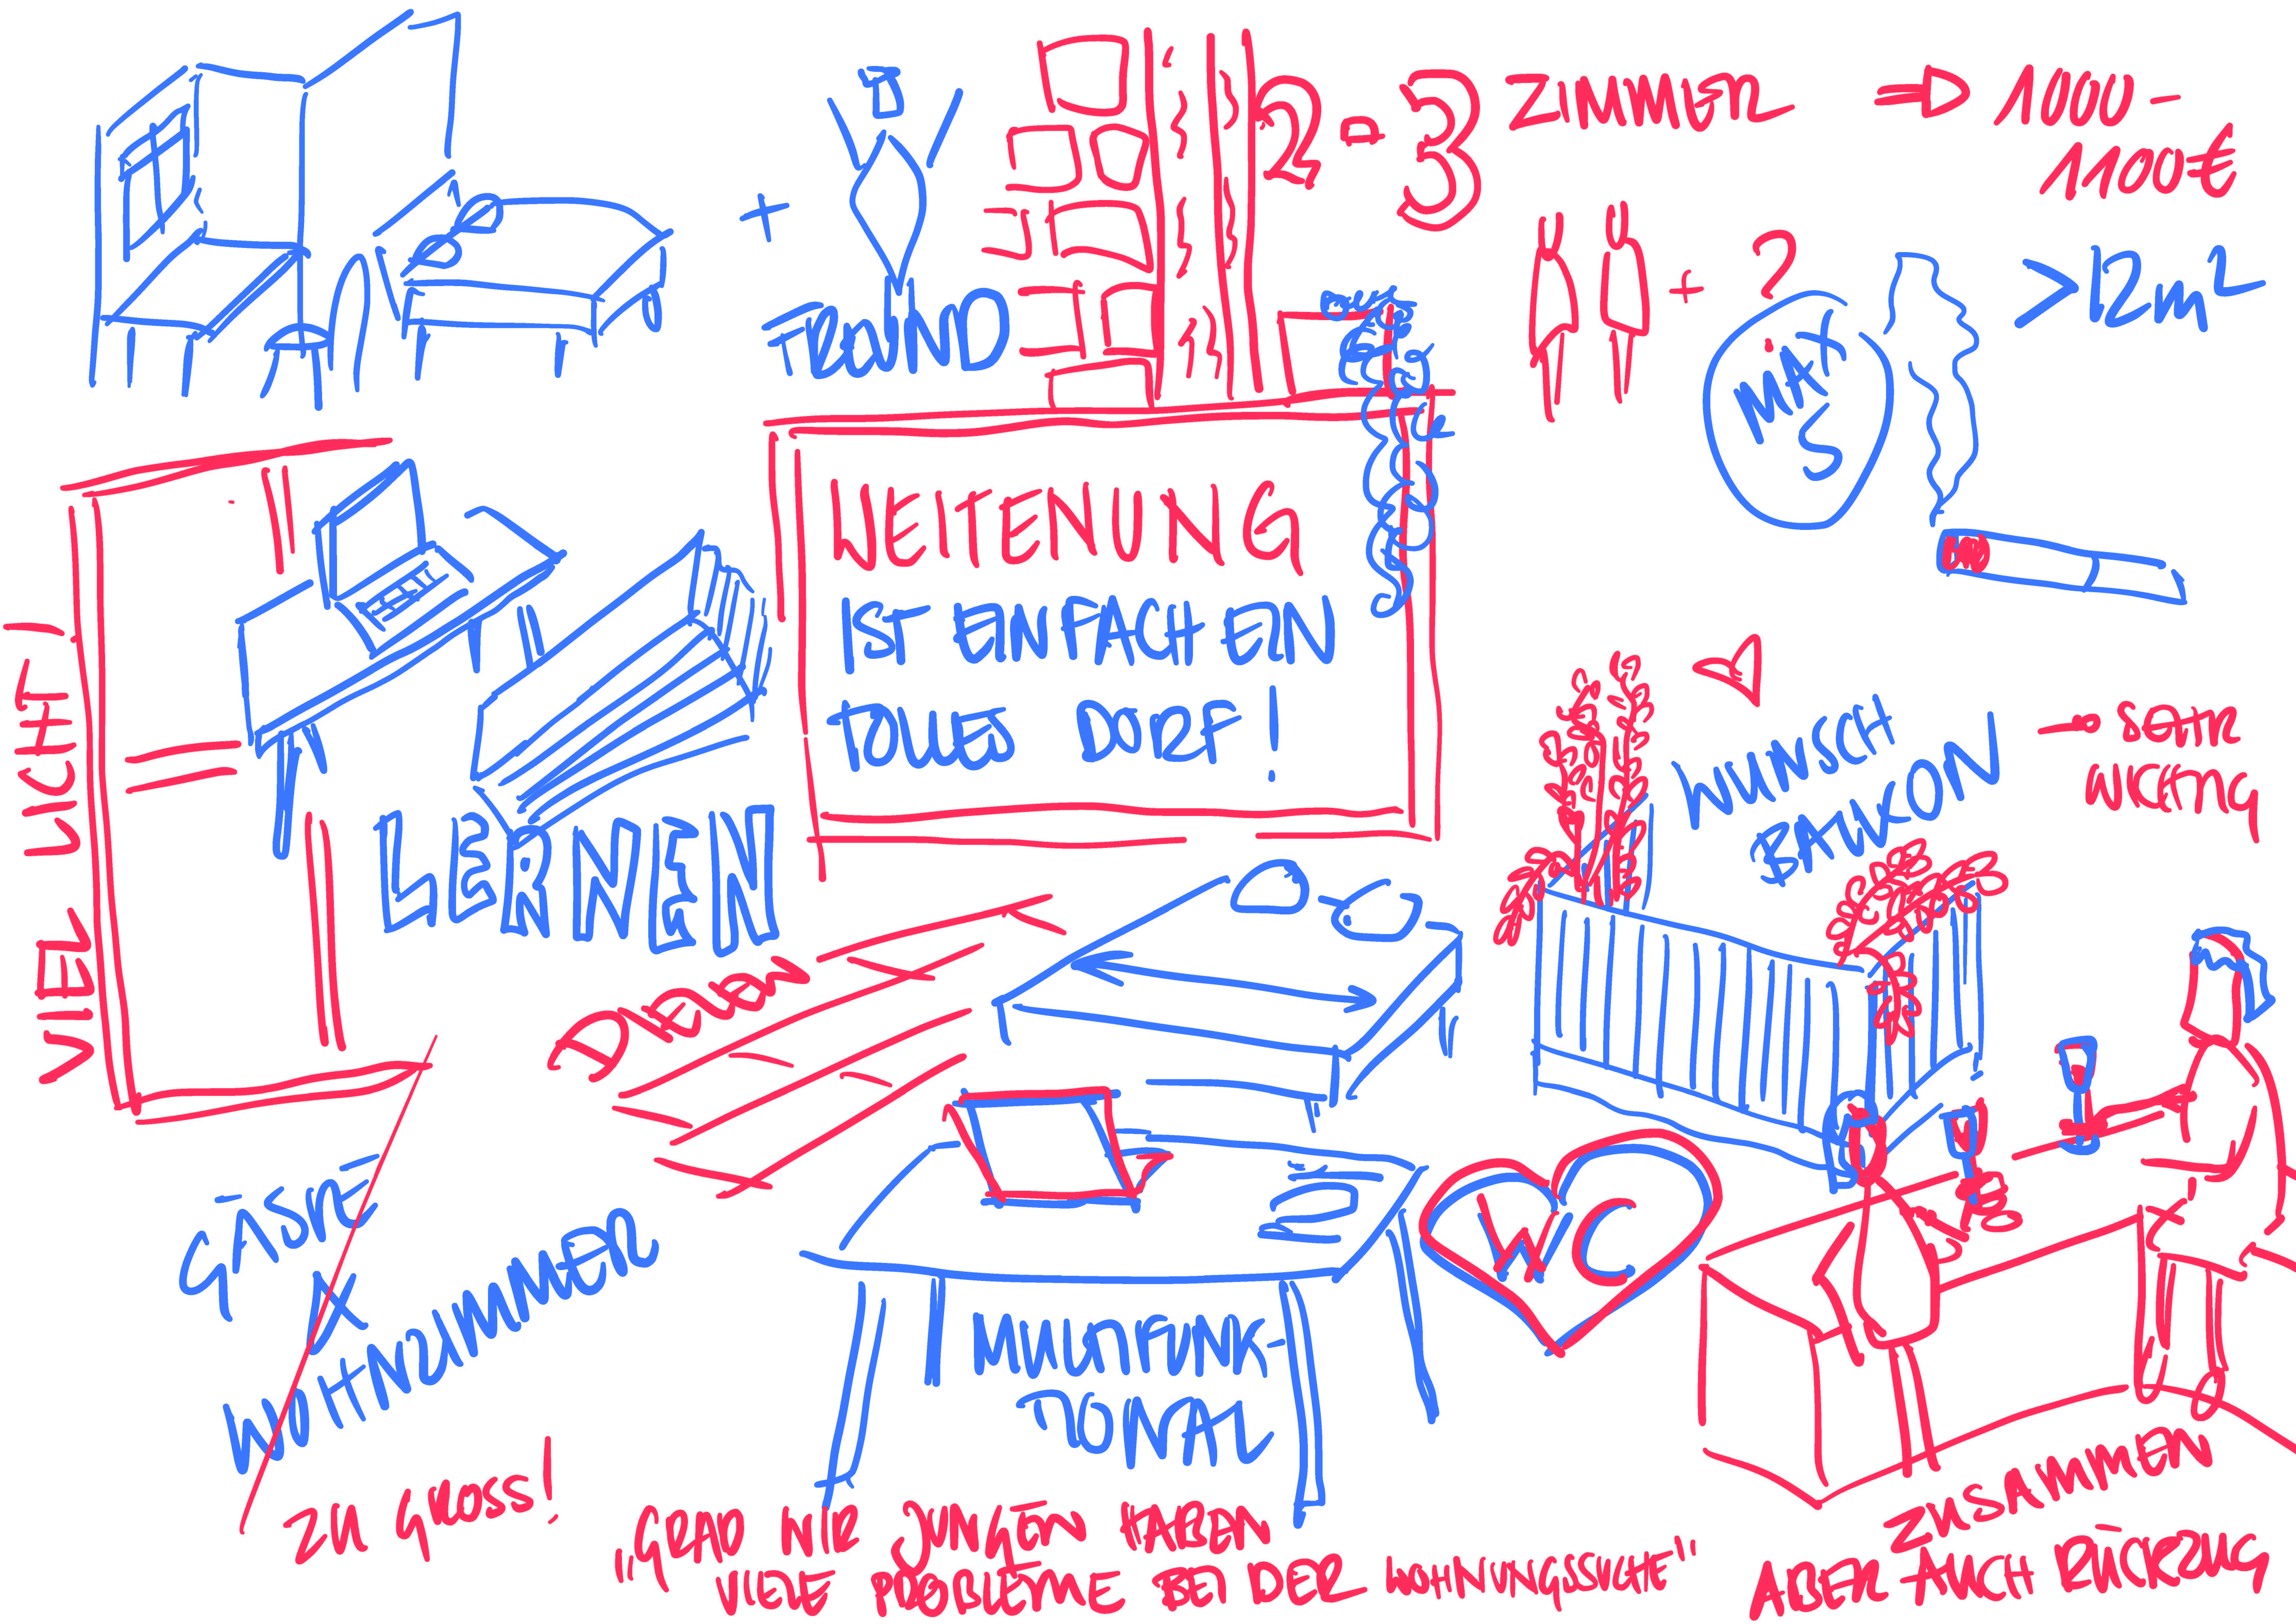 2-3 ZIMMER ⇒ 1000 -
1100€
+ FREUND
+ ?
MAX
5
>12m²
WEITENUNG
IST EINFACH EIN
TOLLES DORF!
VIEL LICHT!
LERNEN
WUNSCH
BALKON!
→ SEHR
WICHTIG
DIELEN
GÄSTE
X
WOHNZIMMER
ZU GROSS!
MULTIFUNK-
TIONAL
WC
"GRAD WIR JUNGEN HABEN
VIELE PROBLEME BEI DER WOHNUNGSSUCHE"
ZUSAMMEN
ABER AUCH RÜCKZUG